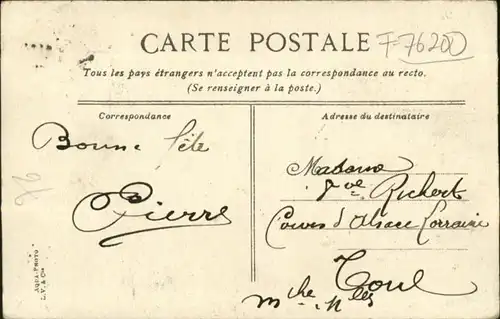 CARTE POSTALE
F-76200
Tous les pays étrangers n'acceptent pas la correspondance au recto.
(Se renseigner à la poste.)
Correspondance
Bonne fête
Pierre
AQUA-PHOTO
L.V. & Cie
Adresse du destinataire
Madame
Vve Richert
Cours d'Alsace Lorraine
Toul
Mthe Mlle